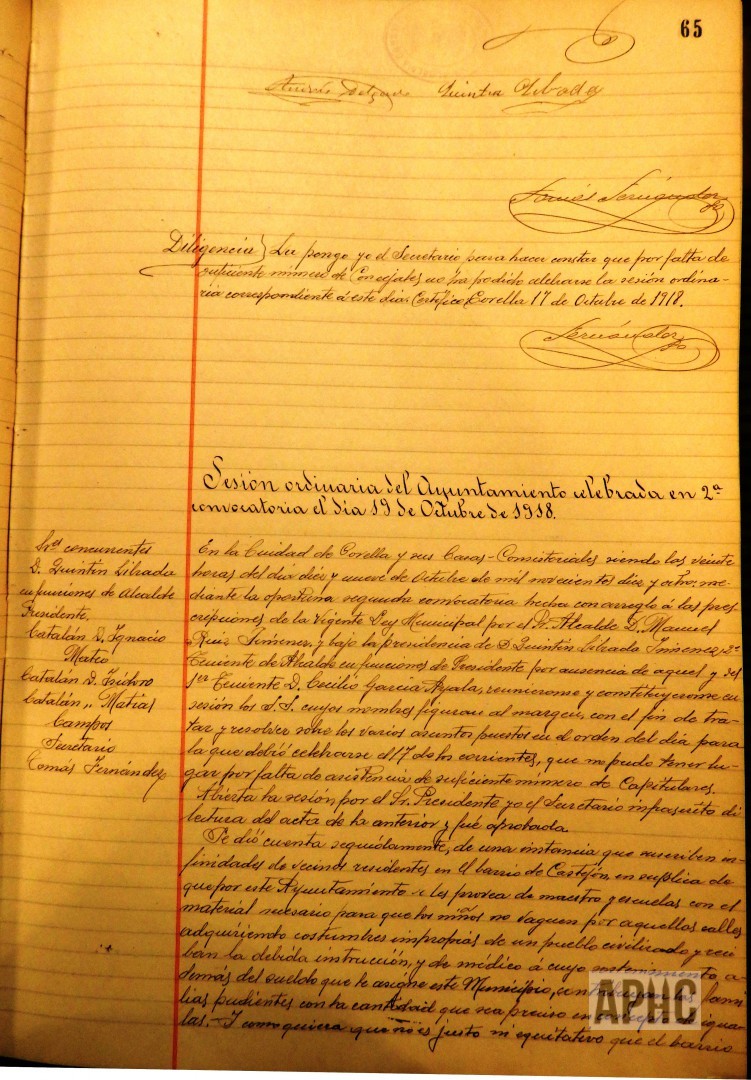 65
Andrés Delgado Quintín Librada
Tomás Fernández
Diligencia) La pongo yo el Secretario para hacer constar que por falta de
suficiente número de Concejales no ha podido celebrarse la sesión ordina-
ria correspondiente á este dia. Certifico. Corella 17 de Octubre de 1918.
Fernández
Sesión ordinaria del Ayuntamiento celebrada en 2ª
convocatoria el dia 19 de Octubre de 1918.
Sres concurrentes
D. Quintín Librada
en funciones de Alcalde
Presidente.
Catalán D. Ignacio
Mateo
Catalán D. Isidoro
Catalán " Matias
Campos
Secretario
Tomás Fernández
En la Ciudad de Corella y sus Casas-Consistoriales siendo las veinte
horas del dia diez y nueve de Octubre de mil novecientos diez y ocho, me-
diante la oportuna segunda convocatoria hecha con arreglo á las pres-
cripciones de la Vigente Ley Municipal por el Sr. Alcalde D. Manuel
Ruiz Jiménez, y bajo la presidencia de D. Quintín Librada Jimenez, 2º
Teniente de Alcalde en funciones de Presidente por ausencia de aquel y del
1er Teniente D. Cecilio García Ayala, reunieronse y constituyeronse en
sesión los S.S. cuyos nombres figuran al margen, con el fin de tra-
tar y resolver sobre los varios asuntos puestos en el orden del dia para
la que debió celebrarse el 17 de los corrientes, que no pudo tener lu-
gar por falta de asistencia de suficiente número de Capitulares.
Abierta la sesión por el Sr. Presidente yo el Secretario infrascrito di
lectura del acta de la anterior y fué aprobada.
Se dió cuenta seguidamente, de una instancia que suscriben in-
finidades de vecinos residentes en el barrio de Castejón, en suplica de
que por este Ayuntamiento se les provea de maestro y escuelas con el
material necesario para que los niños no vaguen por aquellas calles
adquiriendo costumbres impropias de un pueblo civilizado y reci-
ban la debida instrucción, y de médico á cuyo sostenimiento a-
demás del sueldo que le asigne este Municipio, contribuyan las fami-
lias pudientes con la cantidad que sea preciso en concepto de igua-
las.- Y como quiera que no es justo ni equitativo que el barrio
APHC